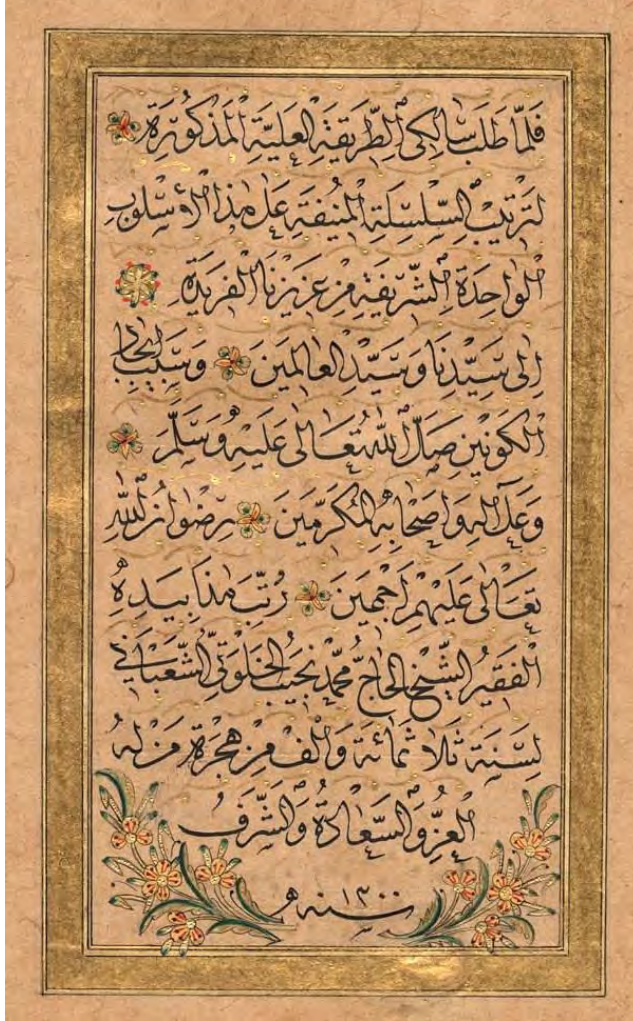 فَلَمَّا طَلَبَ سَالِكِي الطَّرِيقَةِ الْعَلِيَّةِ الْمَذْكُورَةِ
لِتَرْتِيبِ السِّلْسِلَةِ الْمُنِيفَةِ عَلَى هٰذَا الْأُسْلُوبِ
الْوَاحِدَةِ الشَّرِيفَةِ مِنْ عَزِيزِنَا الْفَرِيدَةِ
اِلَى سَيِّدِنَا وَسَيِّدِ الْعَالَمِينَ وَسَبَبِ اِيجَادِ
الْكَوْنَيْنِ صَلَّى اللّٰهُ تَعَالَى عَلَيْهِ وَسَلَّمَ
وَعَلَى اٰلِهِ وَاَصْحَابِهِ الْمُكَرَّمِينَ رِضْوَانُ اللّٰهِ
تَعَالَى عَلَيْهِمْ اَجْمَعِينَ رُتِّبَ هٰذَا بِيَدِهِ
الْفَقِيرُ الشَّيْخُ الْحَاجُّ مُحَمَّد نَجِيبُ الْخَلْوَتِيُّ الشَّعْبَانِي
لِسَنَةِ ثَلَاثَمِائَةَ وَاَلْفٍ مِنْ هِجْرَةِ مَنْ لَهُ
الْعِزُّ وَالسَّعَادَةُ وَالشَّرَفُ
سنه ١٣٠٠